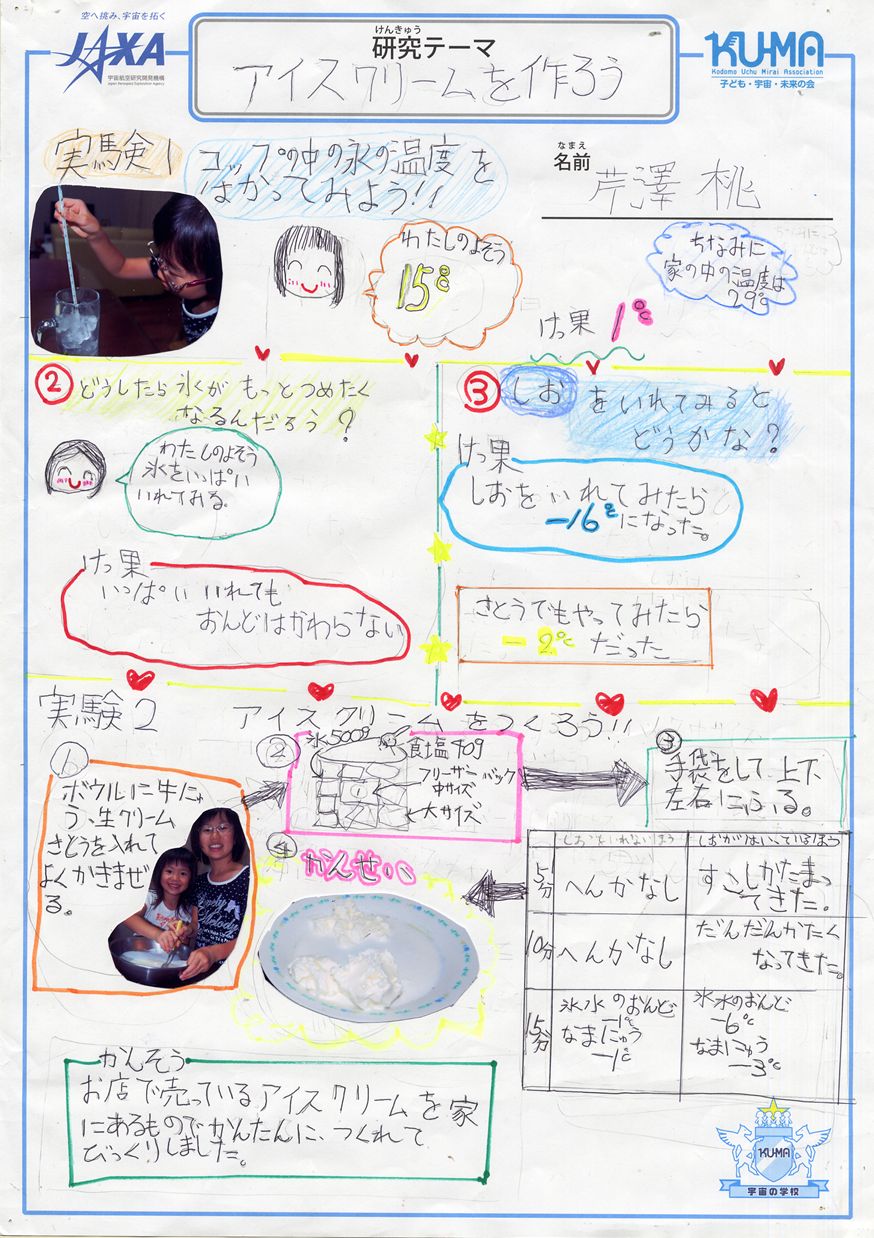 空へ挑み、宇宙を拓く
JAXA
宇宙航空研究開発機構
Japan Aerospace Exploration Agency
けんきゅう
研究テーマ
アイスクリームを作ろう
KU-MA
Kodomo Uchu Mirai Association
子ども・宇宙・未来の会
実験1
コップの中の氷の温度を
はかってみよう!!
なまえ
名前
芹澤 桃
わたしのよそう
15℃
ちなみに
家の中の温度は
29℃
けっ果 1℃
② どうしたら氷がもっとつめたく
なるんだろう?
わたしのよそう
氷をいっぱい
いれてみる。
けっ果
いっぱいいれても
おんどはかわらない
③ しおをいれてみると
どうかな?
けっ果
しおをいれてみたら
-16℃になった。
さとうでもやってみたら
-2℃だった
実験2 アイスクリームをつくろう!!
①
ボウルに牛にゅ
う、生クリーム
さとうを入れて
よくかきまぜ
る。
②
氷500g
食塩90g
フリーザーバック
中サイズ
大サイズ
③
手袋をして上下
左右にふる。
④ かんせい
しおをいれないほう
しおがはいっているほう
5分
へんかなし
すこしかたまっ
てきた。
10分
へんかなし
だんだんかたく
なってきた。
15分
氷水のおんど
-1℃
なまにゅう
-1℃
氷水のおんど
-6℃
なまにゅう
-3℃
かんそう
お店で売っているアイスクリームを家
にあるものでかんたんに、つくれて
びっくりしました。
KU-MA
宇宙の学校